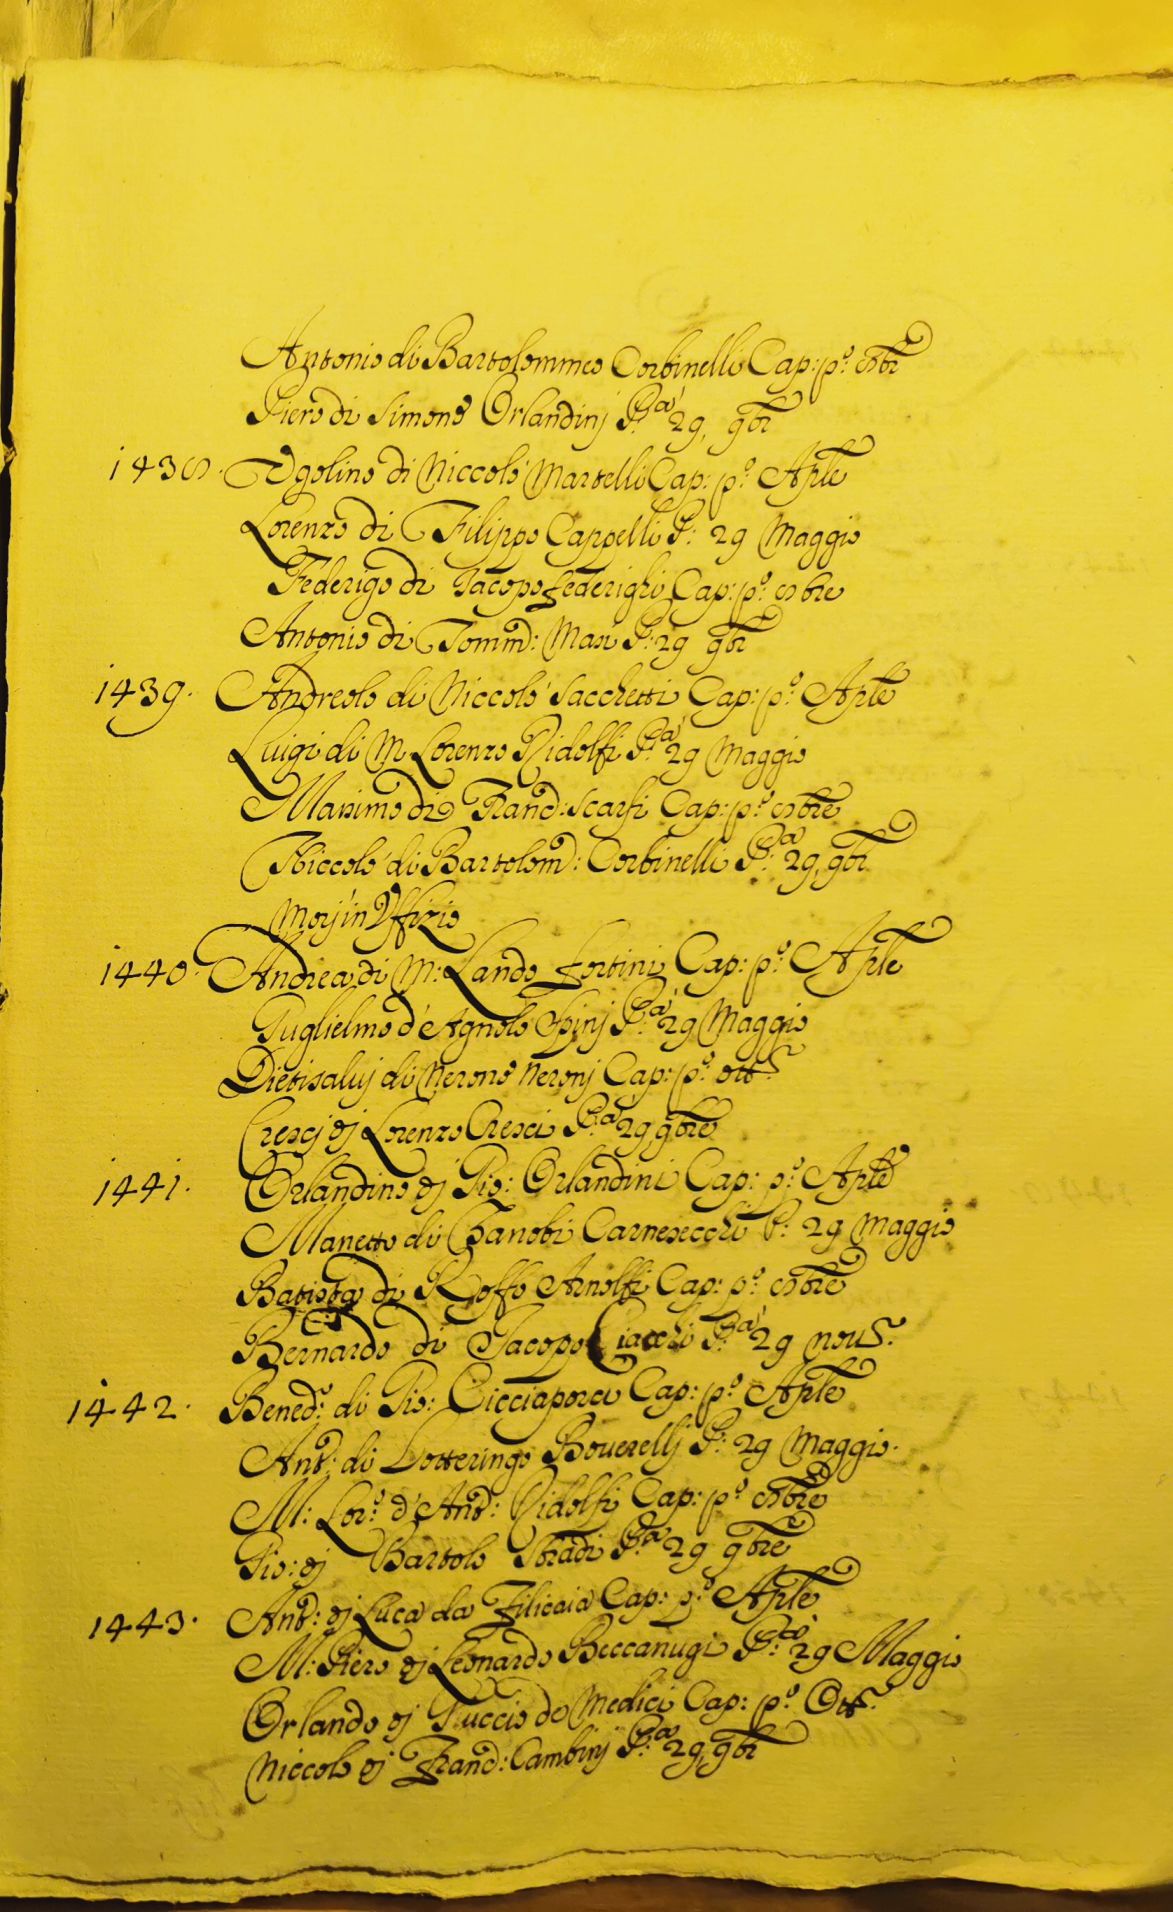 Antonio di Bartolommeo Corbinelli Cap: p.º 8bre
Piero di Simone Orlandinj P.ª 29, 9bre
1438. Ugolino di Niccolò Martelli Cap: p.º Aprle
Lorenzo di Filippo Cappelli P: 29 Maggio
Federigo di Jacopo Federighi Cap: p.º 8bre
Antonio di Tommo: Masi P: 29 9bre
1439. Andreolo di Niccolò Sacchetti Cap: p.º Aprle
Luigi di M Lorenzo Ridolfi P.ª 29 Maggio
Massimo di Franco: Scarfi Cap: p.º 8bre
Niccolò di Bartolomo: Corbinelli P.ª 29, 9bre
Morj in Uffizio
1440. Andrea di M: Lando Fortini Cap: p.º Aprle
Guglielmo d'Agnolo Spinj P.ª 29 Maggio
Dietisaluj di Nerone Neronj Cap: p.º ott.e
Crescj dj Lorenzo Cresci P.ª 29, 9bre
1441. Orlandino dj Gio: Orlandini Cap: p.º Aprle
Manetto di Zanobi Carnesecchi P: 29 Maggio
Batista di Roffo Arnolfi Cap: p.º 8bre
Bernardo di Jacopo Ciacchi P.ª 29 nou.e
1442. Bened.º di Gio: Cicciaporci Cap: p.º Aprle
Anto: di Lotteringo Bouerellj P: 29 Maggio.
M: Lor.º d'Anto: Ridolfi Cap: p.º 8bre
Gio: dj Bartolo Stradi P.ª 29 9bre
1443. Anto: dj Luca da Filicaia Cap: p.º Aprle
M: Piero dj Leonardo Beccanugi P.ª 29 Maggio
Orlando dj Guccio de Medici Cap: p.º Ott.e
Niccolo dj Franco: Cambinj P.ª 29, 9bre